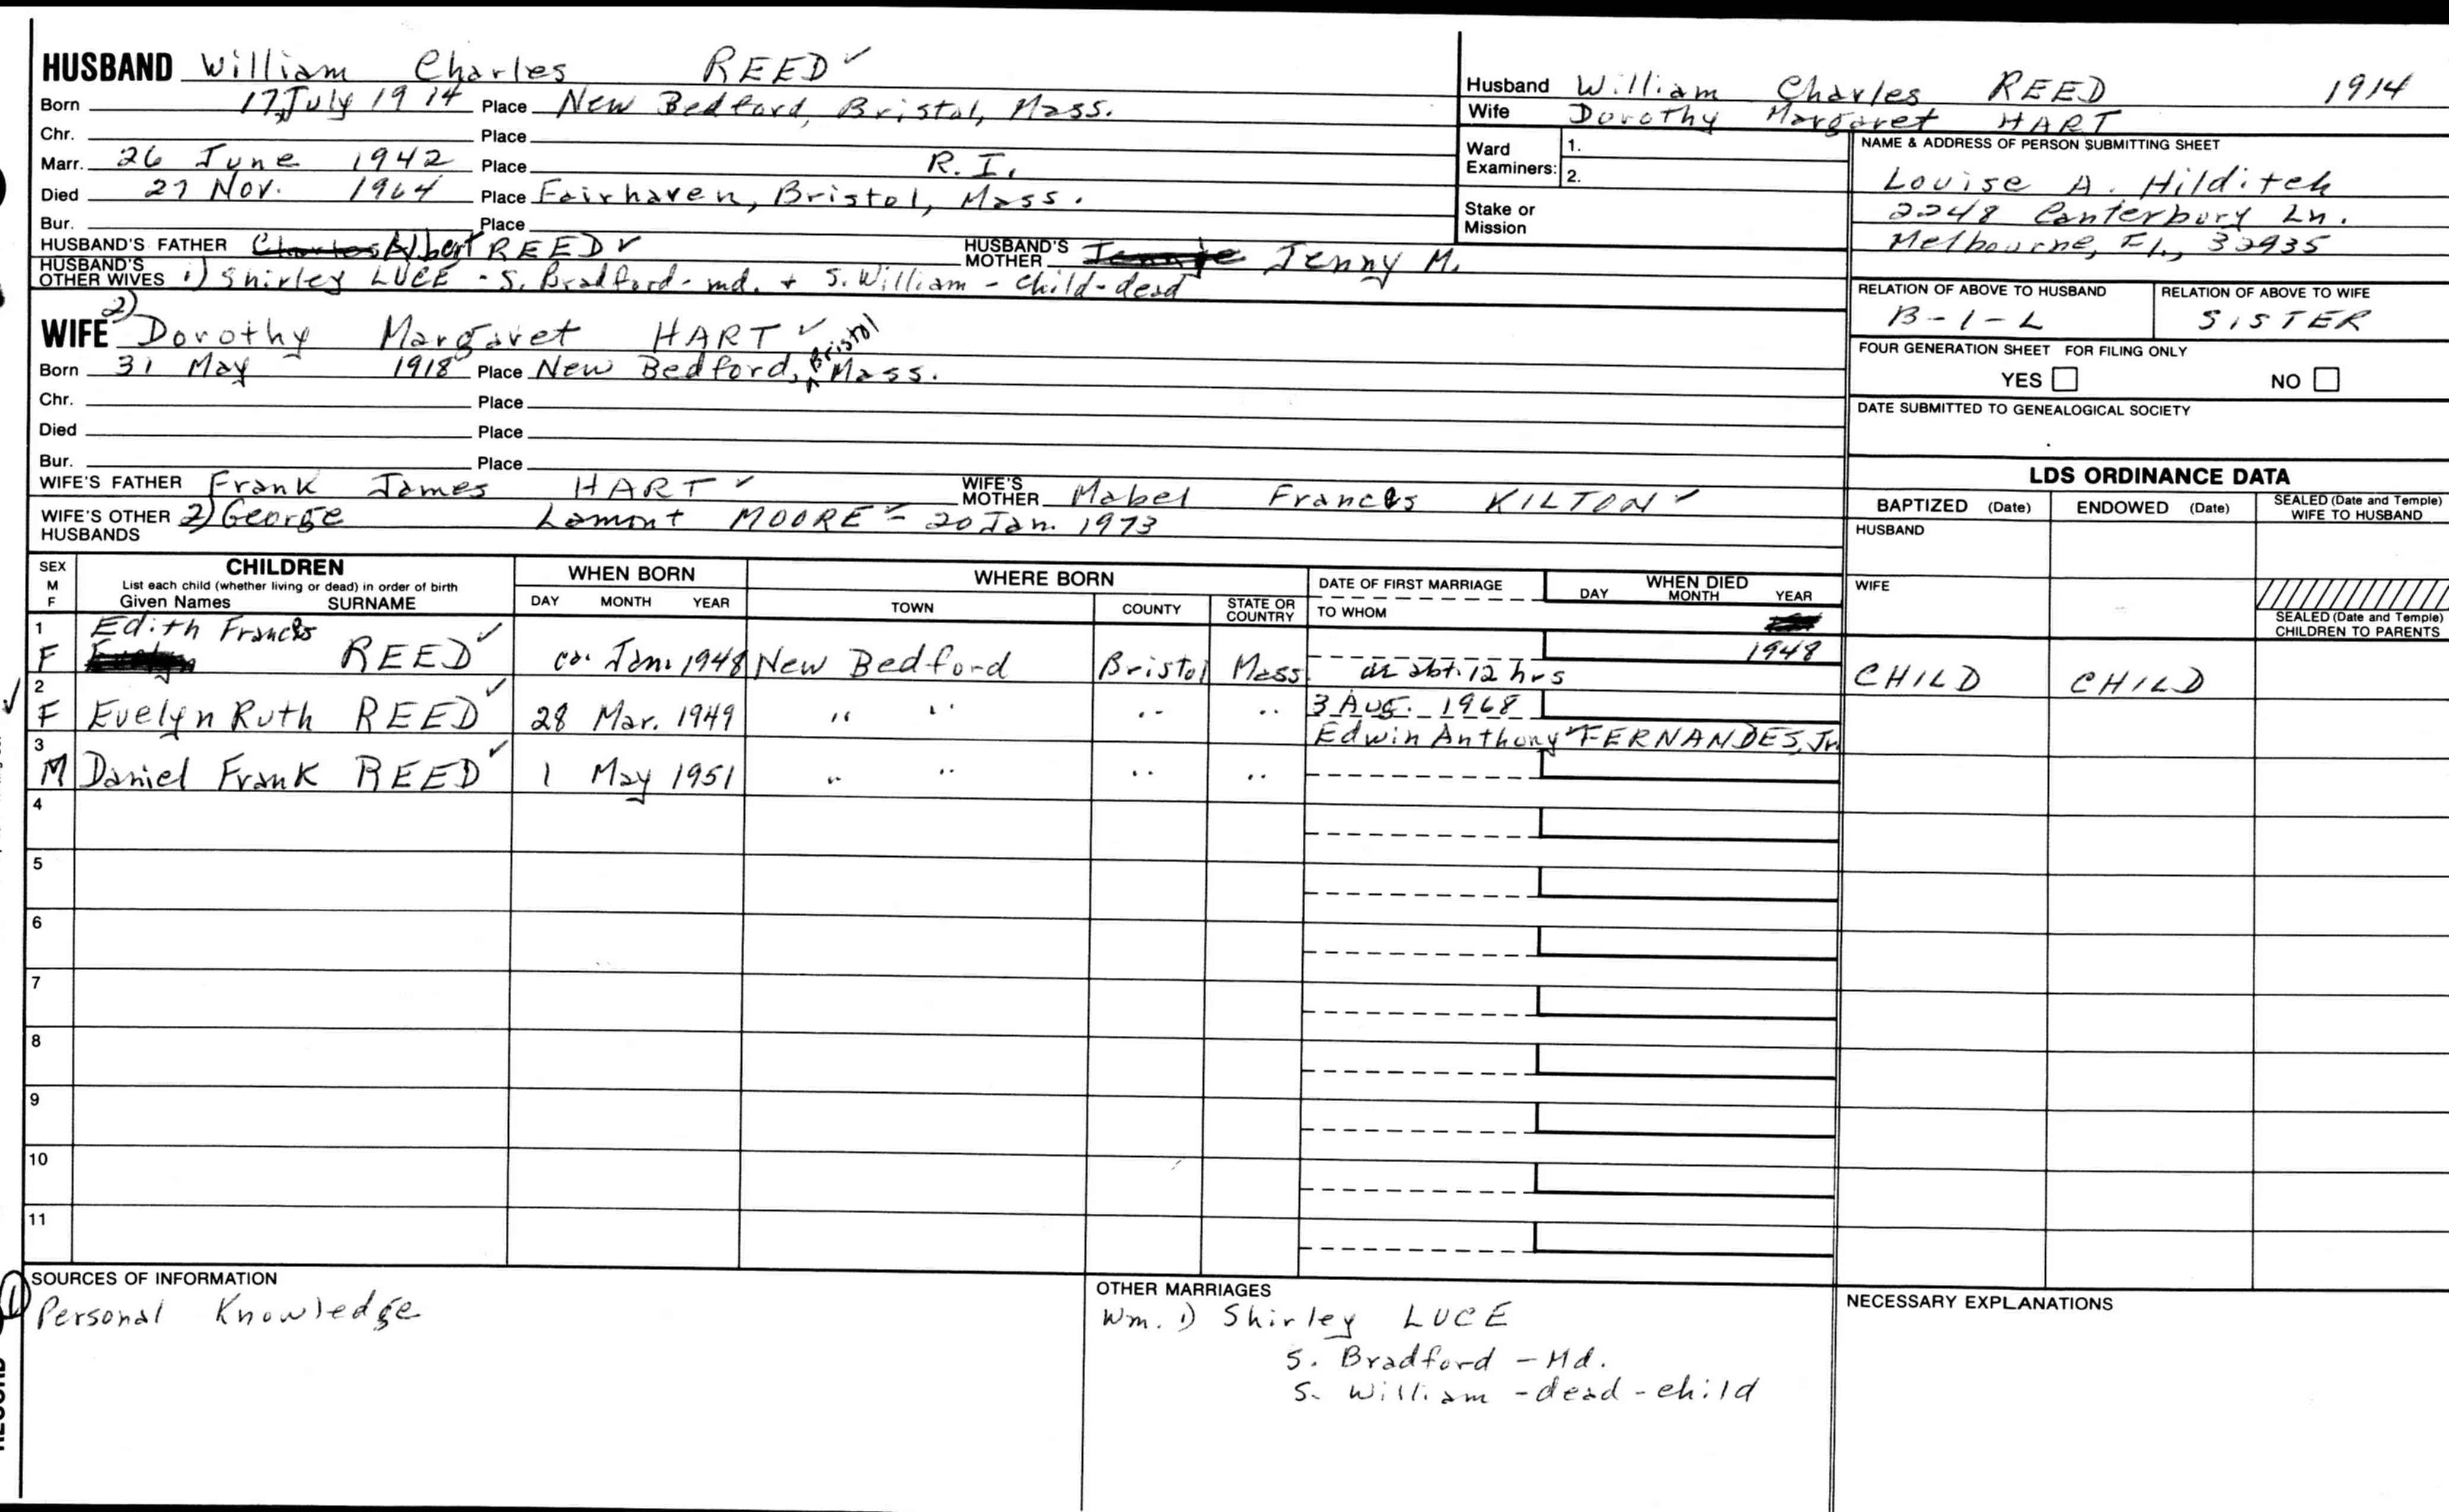 HUSBAND William Charles REED ✓
Born 17 July 1914 Place New Bedford, Bristol, Mass.
Chr. Place
Marr. 26 June 1942 Place R.I.
Died 27 Nov. 1964 Place Fairhaven, Bristol, Mass.
Bur. Place
HUSBAND'S FATHER Charles Albert REED ✓ HUSBAND'S MOTHER Jennie Jenny M.
HUSBAND'S OTHER WIVES 1) Shirley LUCE - S. Bradford - md. + S. William - child - dead
2)
WIFE Dorothy Margaret HART ✓
Born 31 May 1918 Place New Bedford, ^ Bristol Mass.
Chr. Place
Died Place
Bur. Place
WIFE'S FATHER Frank James HART ✓ WIFE'S MOTHER Mabel Frances KILTON ✓
WIFE'S OTHER HUSBANDS 2) George Lamont MOORE ✓ - 20 Jan. 1973
Husband William Charles REED 1914
Wife Dorothy Margaret HART
Ward Examiners: 1.
2.
Stake or Mission
NAME & ADDRESS OF PERSON SUBMITTING SHEET
Louise A. Hilditch
2248 Canterbury Ln.
Melbourne, Fl., 32935
RELATION OF ABOVE TO HUSBAND RELATION OF ABOVE TO WIFE
B-I-L SISTER
FOUR GENERATION SHEET FOR FILING ONLY
YES NO
DATE SUBMITTED TO GENEALOGICAL SOCIETY
LDS ORDINANCE DATA
BAPTIZED (Date) ENDOWED (Date) SEALED (Date and Temple) WIFE TO HUSBAND
HUSBAND
WIFE
SEALED (Date and Temple) CHILDREN TO PARENTS
SEX M F CHILDREN WHEN BORN WHERE BORN DATE OF FIRST MARRIAGE WHEN DIED
List each child (whether living or dead) in order of birth
Given Names SURNAME DAY MONTH YEAR TOWN COUNTY STATE OR COUNTRY TO WHOM DAY MONTH YEAR
1 Edith Frances
F REED ✓ ca. Jan. 1948 New Bedford Bristol Mass. abt. 12 hrs 1948 CHILD CHILD
2 3 Aug. 1968
F Evelyn Ruth REED ✓ 28 Mar. 1949 " " " " Edwin Anthony FERNANDES, Jr.
3
M Daniel Frank REED ✓ 1 May 1951 " " " "
4
5
6
7
8
9
10
11
SOURCES OF INFORMATION
Personal Knowledge
OTHER MARRIAGES
Wm. 1) Shirley LUCE
S. Bradford - Md.
S. William - dead - child
NECESSARY EXPLANATIONS